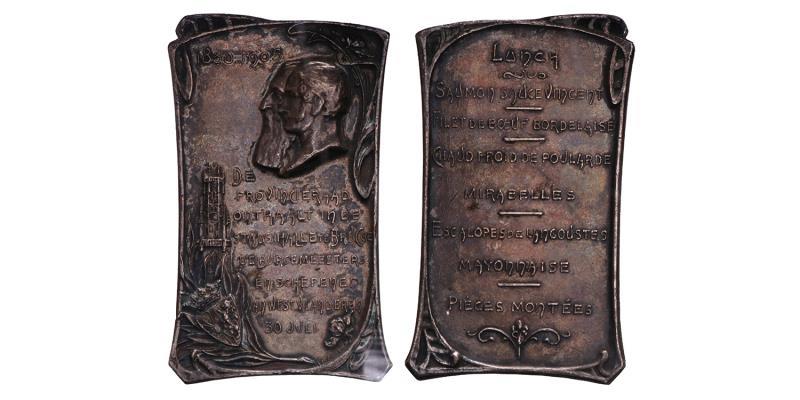 1830-1905
DE
PROVINCIERAAD
ONTHAALT IN DE
STADSHALLE TE BRUGGE
DE BURGEMEESTERS
EN SCHEPENEN
VAN WEST VLAANDEREN
30 JULI
LUNCH
SAUMON SAUCE VINCENT
FILET DE BŒUF BORDELAISE
CHAUD FROID DE POULARDE
MIRABELLES
ESCALOPES DE LANGOUSTES
MAYONNAISE
PIÈCES MONTÉES